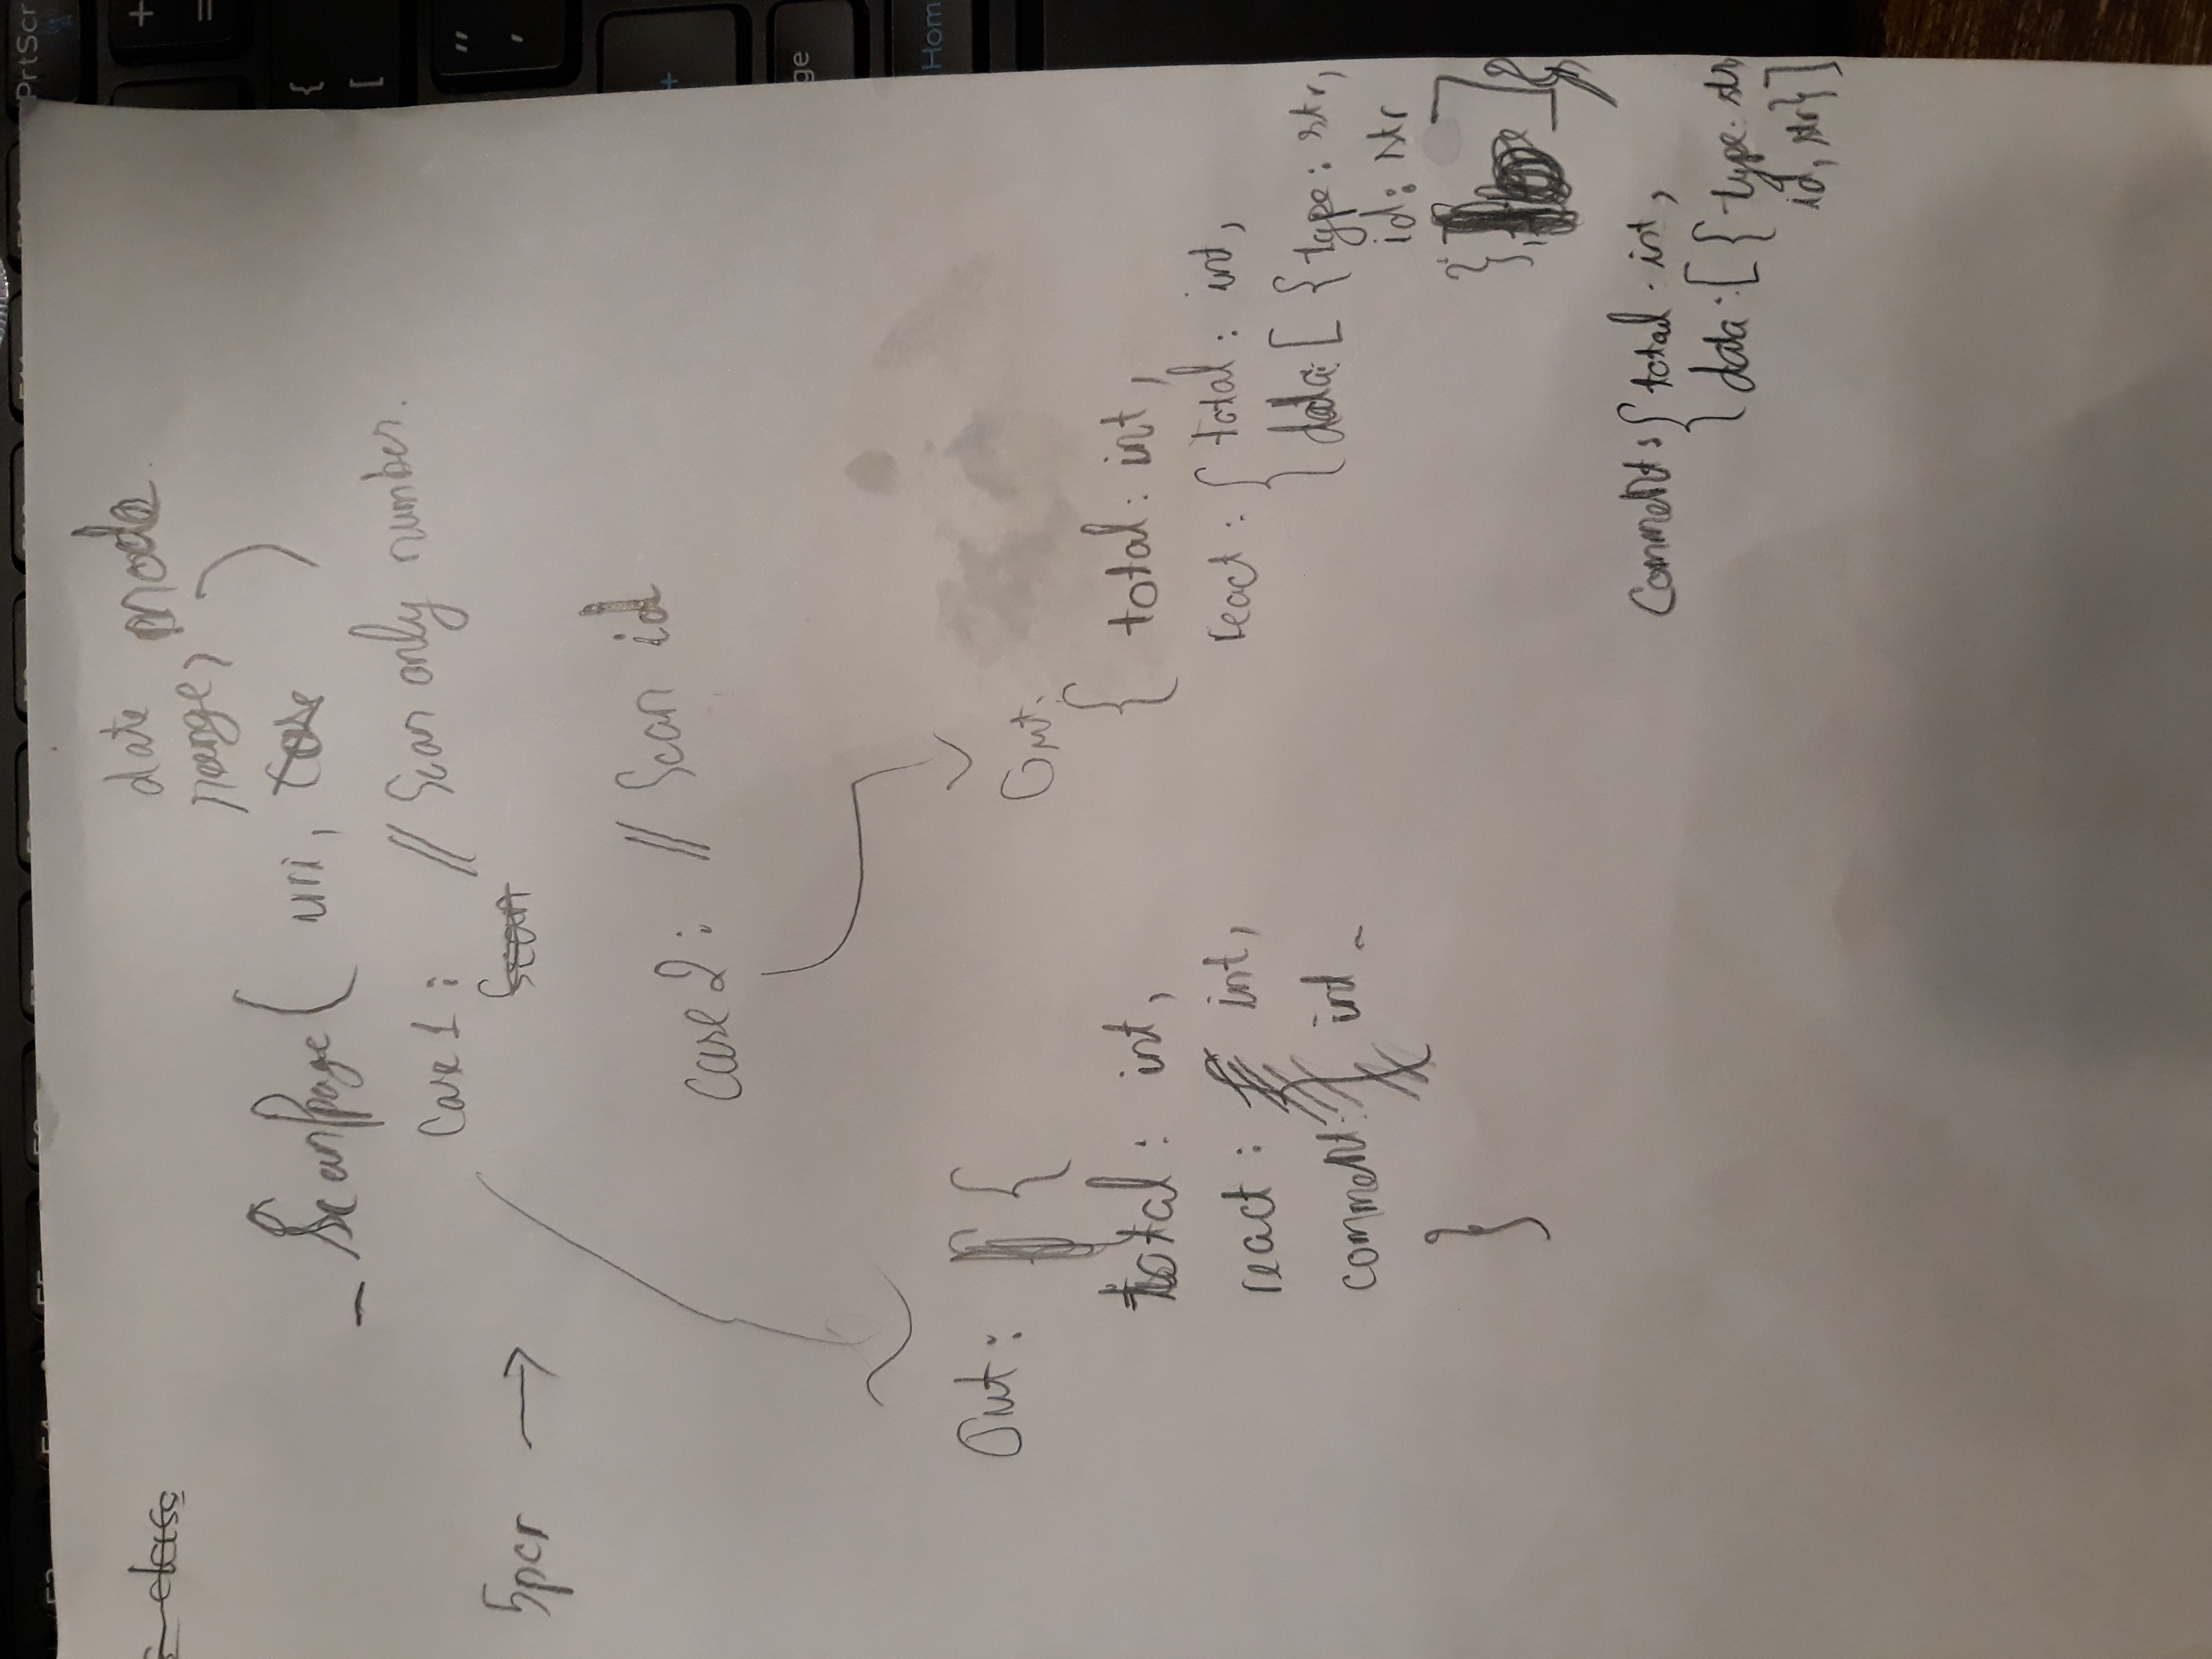 s class
date
range, mode.
- ScanPage( uri, Case )
Case 1: // Scan only number.
Scan
5pcr →
case 2: // Scan id
Out: {
total: int,
react: int,
comment: int
}
Out:
{ total: int,
react: { total: int,
data: [ { type: str,
id: str
}, ] },
Comment: { total: int,
data: [ { type: str
id, str} ]
PrtScr
+
=
{
[
"
'
+
ge
Hom